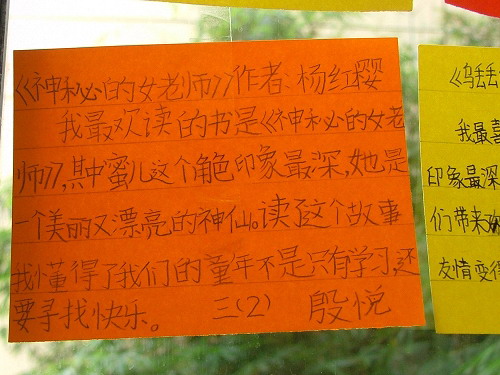 《神秘的女老师》作者:杨红樱
我最欢读的书是《神秘的女老
师》,其中蜜儿这个角色印象最深,她是
一个美丽又漂亮的神仙。读了这个故事
我懂得了我们的童年不是只有学习还
要寻找快乐。 三(2) 殷悦
《乌丢丢
我最喜
印象最深
们带来欢
友情变得